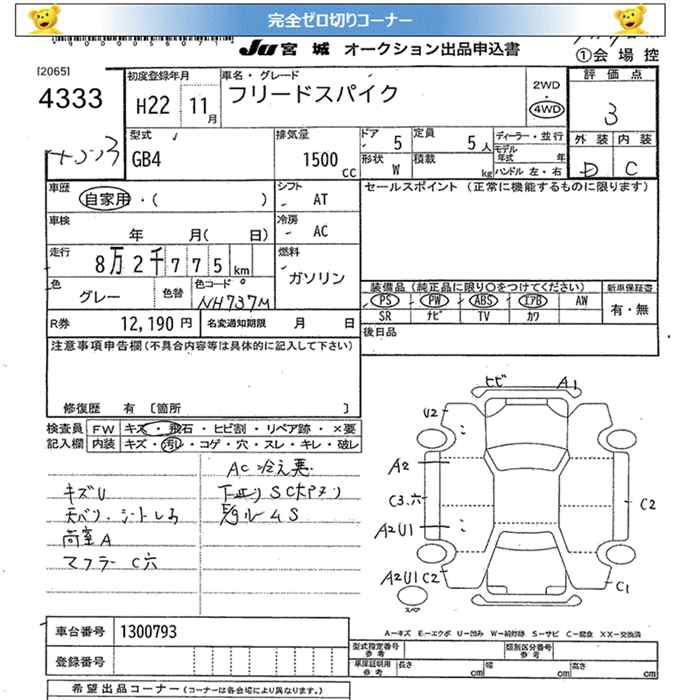 完全ゼロ切りコーナー
JU宮城 オークション出品申込書
①会場控
[2065]
4333
初度登録年月
H22 11月
車名・グレード
フリードスパイク
2WD・4WD
評価点
3
外装 内装
D C
型式
GB4
排気量
1500cc
ドア 5
定員 5人
形状 W
積載 kg
ディーラー・並行
モデル年式 年
ハンドル 左・右
車歴
自家用・( )
シフト
AT
セールスポイント (正常に機能するものに限ります)
車検
年 月( 日)
冷房
AC
走行
8万2千775km
燃料
ガソリン
色
グレー
色替
色コード
NH737M
装備品(純正品に限り○をつけてください)
PS PW ABS エアB AW
SR ナビ TV カワ
新車保証書
有・無
R券 12,190円
名変通知期限 月 日
後日品
注意事項申告欄(不具合内容等は具体的に記入して下さい)
修復歴 有 [箇所 ]
検査員記入欄
FW キズ・飛石・ヒビ割・リペア跡・×要
内装 キズ・汚レ・コゲ・穴・スレ・キレ・破レ
AC冷え悪
キズU
天バリ・シートしみ
荷室A
マフラーC穴
下廻りSC大Pヌリ
ヒビ A1
U2
A2
C3.穴
A2U1
A2U1 C2
C2
C1
スペア
A-キズ E-エクボ U-凹み W-補修跡 S-サビ C-腐食 XX-交換済
車台番号 1300793
登録番号
型式指定番号 参考
類別区分番号 参考
車庫証明用 参考
長さ cm 幅 cm 高さ cm
希望出品コーナー(コーナーは各会場により異なります。)